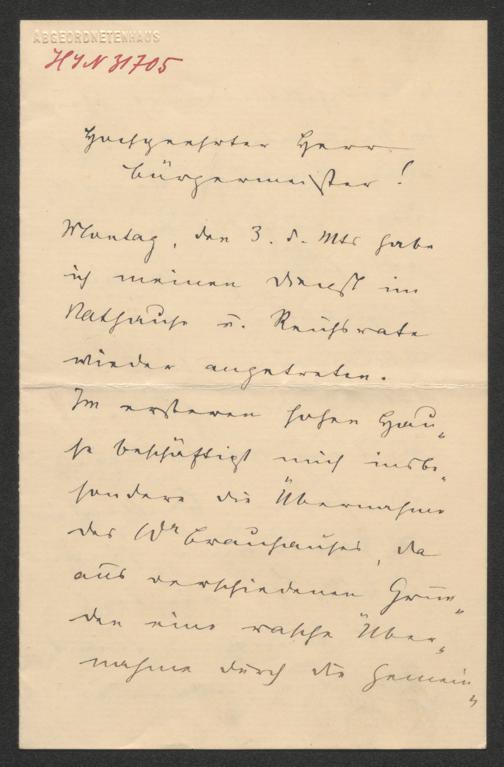 ABGEORDNETENHAUS
HIN 31705
Hochgeehrter Herr
Bürgermeister!
Montag, den 3. d. Mts habe
ich meinen Dienst im
Rathause u. Reichsrate
wieder angetreten.
Im ersteren hohen Hau„
se beschäftigt mich insbe„
sondere die Übernahme
des Brauhauses, da
aus verschiedenen Grün„
den eine rasche Über„
nahme durch die Gemein„